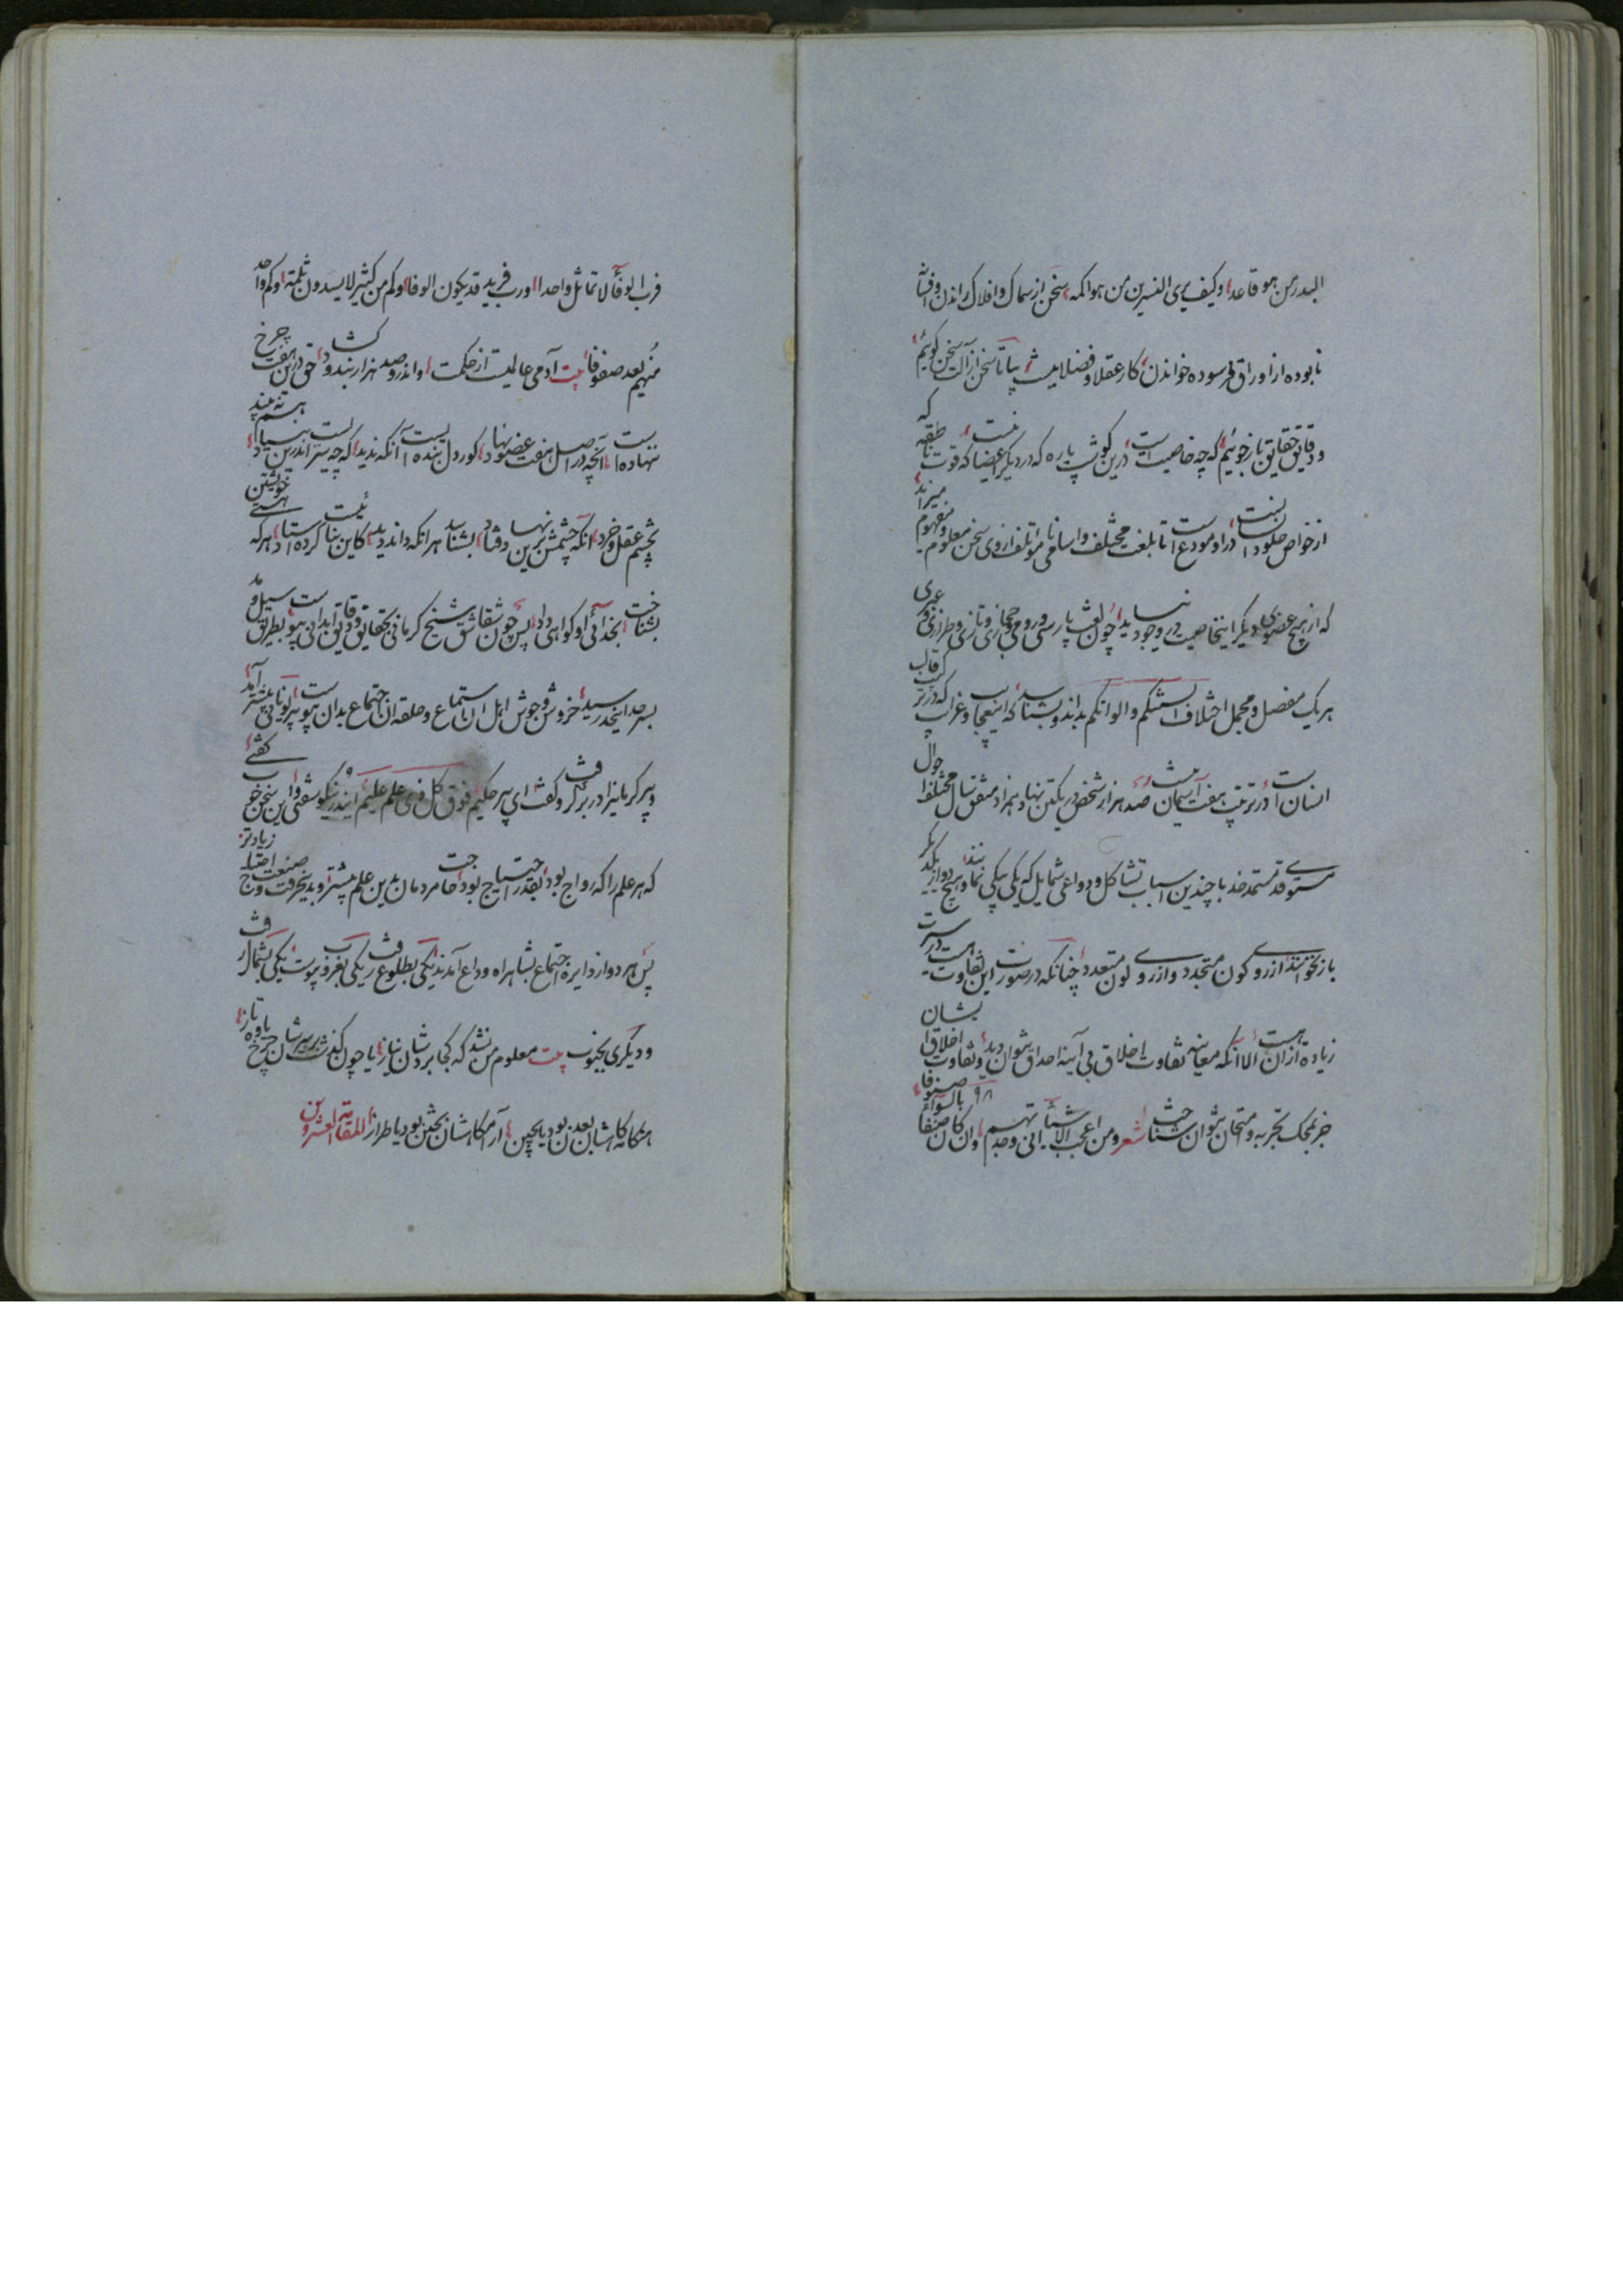 البدر من هو قاعد وکیف یری النسرین من هو اکمه سخن از سماک و افلاک راندن و افسانه
نابوده از اوراق فرسوده خواندن کار عقلا و فضلا نیست بیا تا سخن از آلت سخن گوئیم
و دقایق حقایق باز جوئیم که چه خاصیت است درین گوشت پاره که در دیگر اعضا نیست که قوت ناطقه
از خواص حلود انسانست در او مودع است تا بلغت مختلف و اسامی نا مؤتلف ازوی سخن معلوم و مفهوم میزاید
که از هیچ عضوی دیگر اینخاصیت در وجود نیاید چون لغت پارسی و رومی و حجازی و تازی و طرازی و غیری
هر یک مفصل و مجمل اختلاف السنتکم و الوانکم بداند و بشناسد که اینعجایب و غرایب که در ترکیب قالب
انسان است در ترتیب هفت آسمان نیست صد هزار شخص در یکتن نهاد و همزاد متفق نسال مختلف احوال
مستوقد مستمد خد با چندین اسباب تشاکل و دواعی شمایل که یکی بیکی نماند و هیچ دو از یکدیگر
باز نخوانند از روی کون متجدد و از روی لون متعدد چنانکه در صورت این تفاوت هست در سیرت
زیاده از آن هست الا آنکه معاینه تفاوت اخلاق بی آینه احداق بتوان دید و تفاوت اخلاق ایشان
جز بمحک تجربه و امتحان نتوان شناخت شعر و من اعجب الاشیاء انی وجدتهم و ان کان صنفا بالسواء صنوفا
فرب الوفا لا تماثل واحدا و رب فرید قد یکون الوفا و کم من کثیر لا یسدون ثلمة و کم واحد
منهم یعد صفوفا بیت آدمی عالمیست از حکمت واندرو صد هزار بند و گشاد حق درین هفت چرخ
ننهاده است آنچه در اصل هفت عضو نهاد کور دل بنده ایست آنکه ندید که چه سیر است اندرین بنیاد
بچشم عقل و خرد آنکه چشمش برین نهاد فتاد بشناسد هر آنکه داند دید کاین بنا کرده ایست استاد هر که هستی خویشتن
بشناخت بخدائی او گواهی داد پس چون شقاشق شیخ کرمانی بحقایق و دقایق ابدانی پیوست بطریق سیل و مد
بسر حد اینحد رسید خروش و جوش از اهل استماع و حلقه آن اجتماع بدان پیوست پیر یونانی پیشتر آمد
و پیر کرمانیرا در بر گرفت و گفت ای پیر حکیم فوق کل ذی علم علیم اندر نیکو سفتی و این سخن خوب گفتی
که هر علم را که رواج بود بقدر احتیاج بود حاجت مردمان بدین علم بیشتر و بدین حرفت و صنعت احتیاج زیادتر
پس هر دو از دایره اجتماع بشاهراه وداع آمدند یکی بطلوع رفت یکی بغروب پیوست یکی بشمال رفت
و دیگری بجنوب بیت معلوم من نشد که کجا برد شان نیاز یا چون گذشت بر سرشان چرخ یاوه تاز
هنگامه شان بعدن بود یا بچین آرامگاهشان بختن بود یا طراز المقامة العشرون